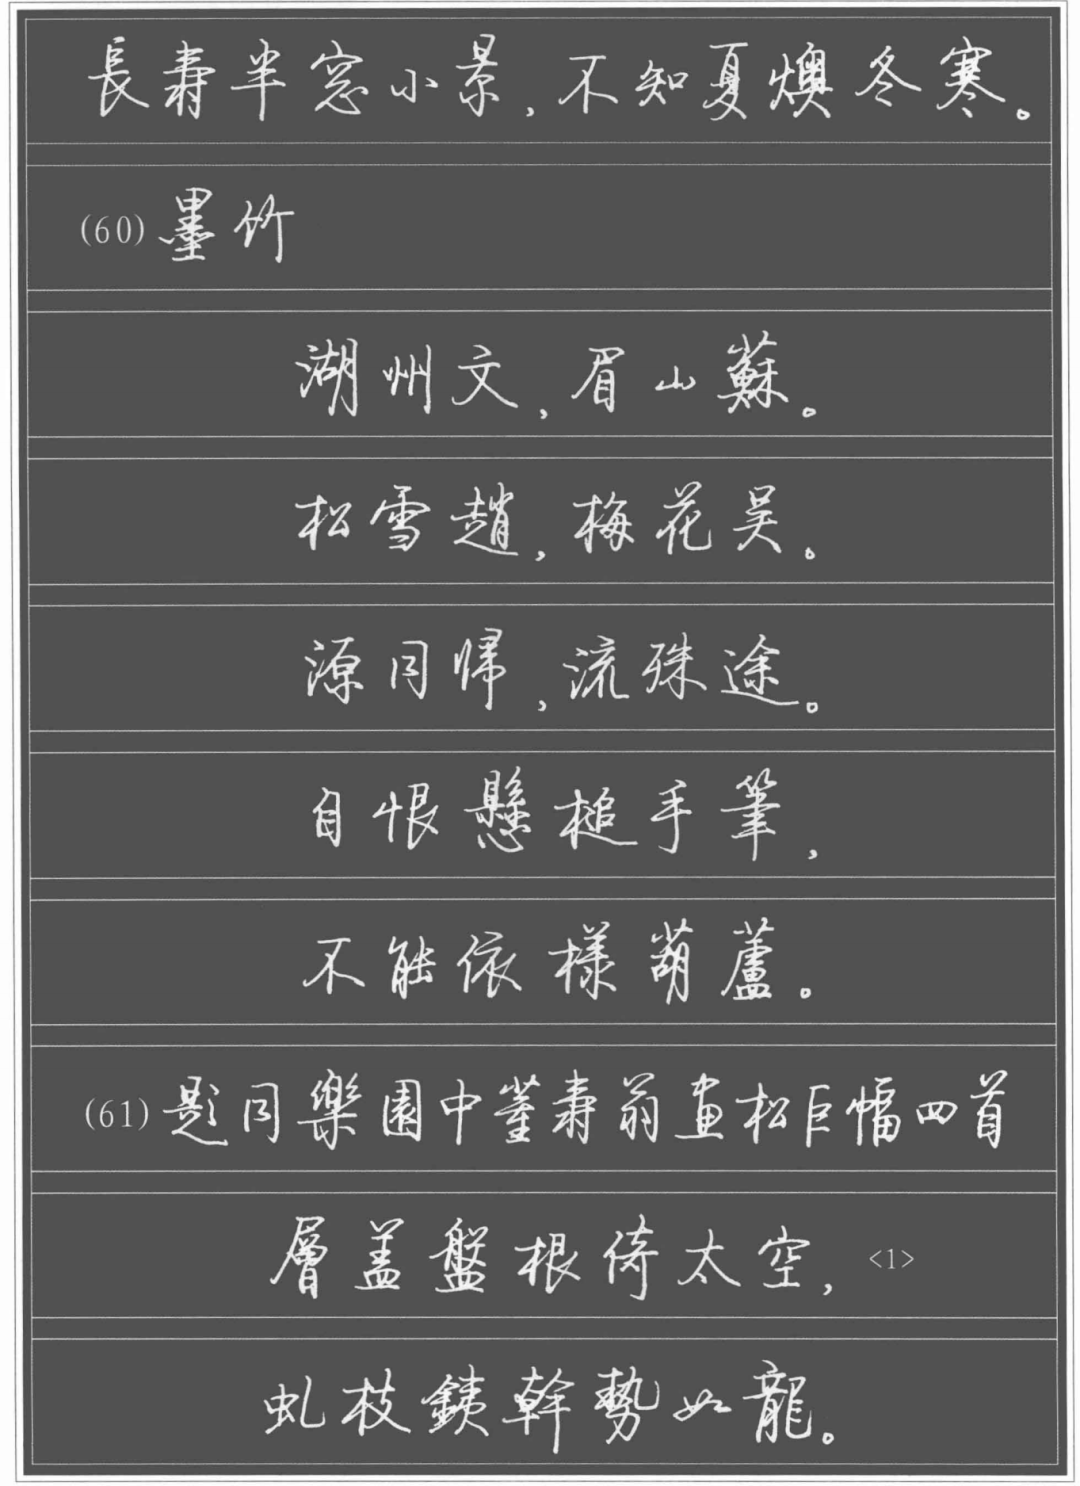 長壽半窓小景,不知夏燠冬寒。
(60)墨竹
湖州文,眉山蘇。
松雪趙,梅花吴。
源同歸,流殊途。
自恨懸槌手筆,
不能依樣葫蘆。
(61)題同樂園中董壽翁畫松巨幅四首
層盖盤根倚太空,<1>
虬枝鐵幹勢如龍。